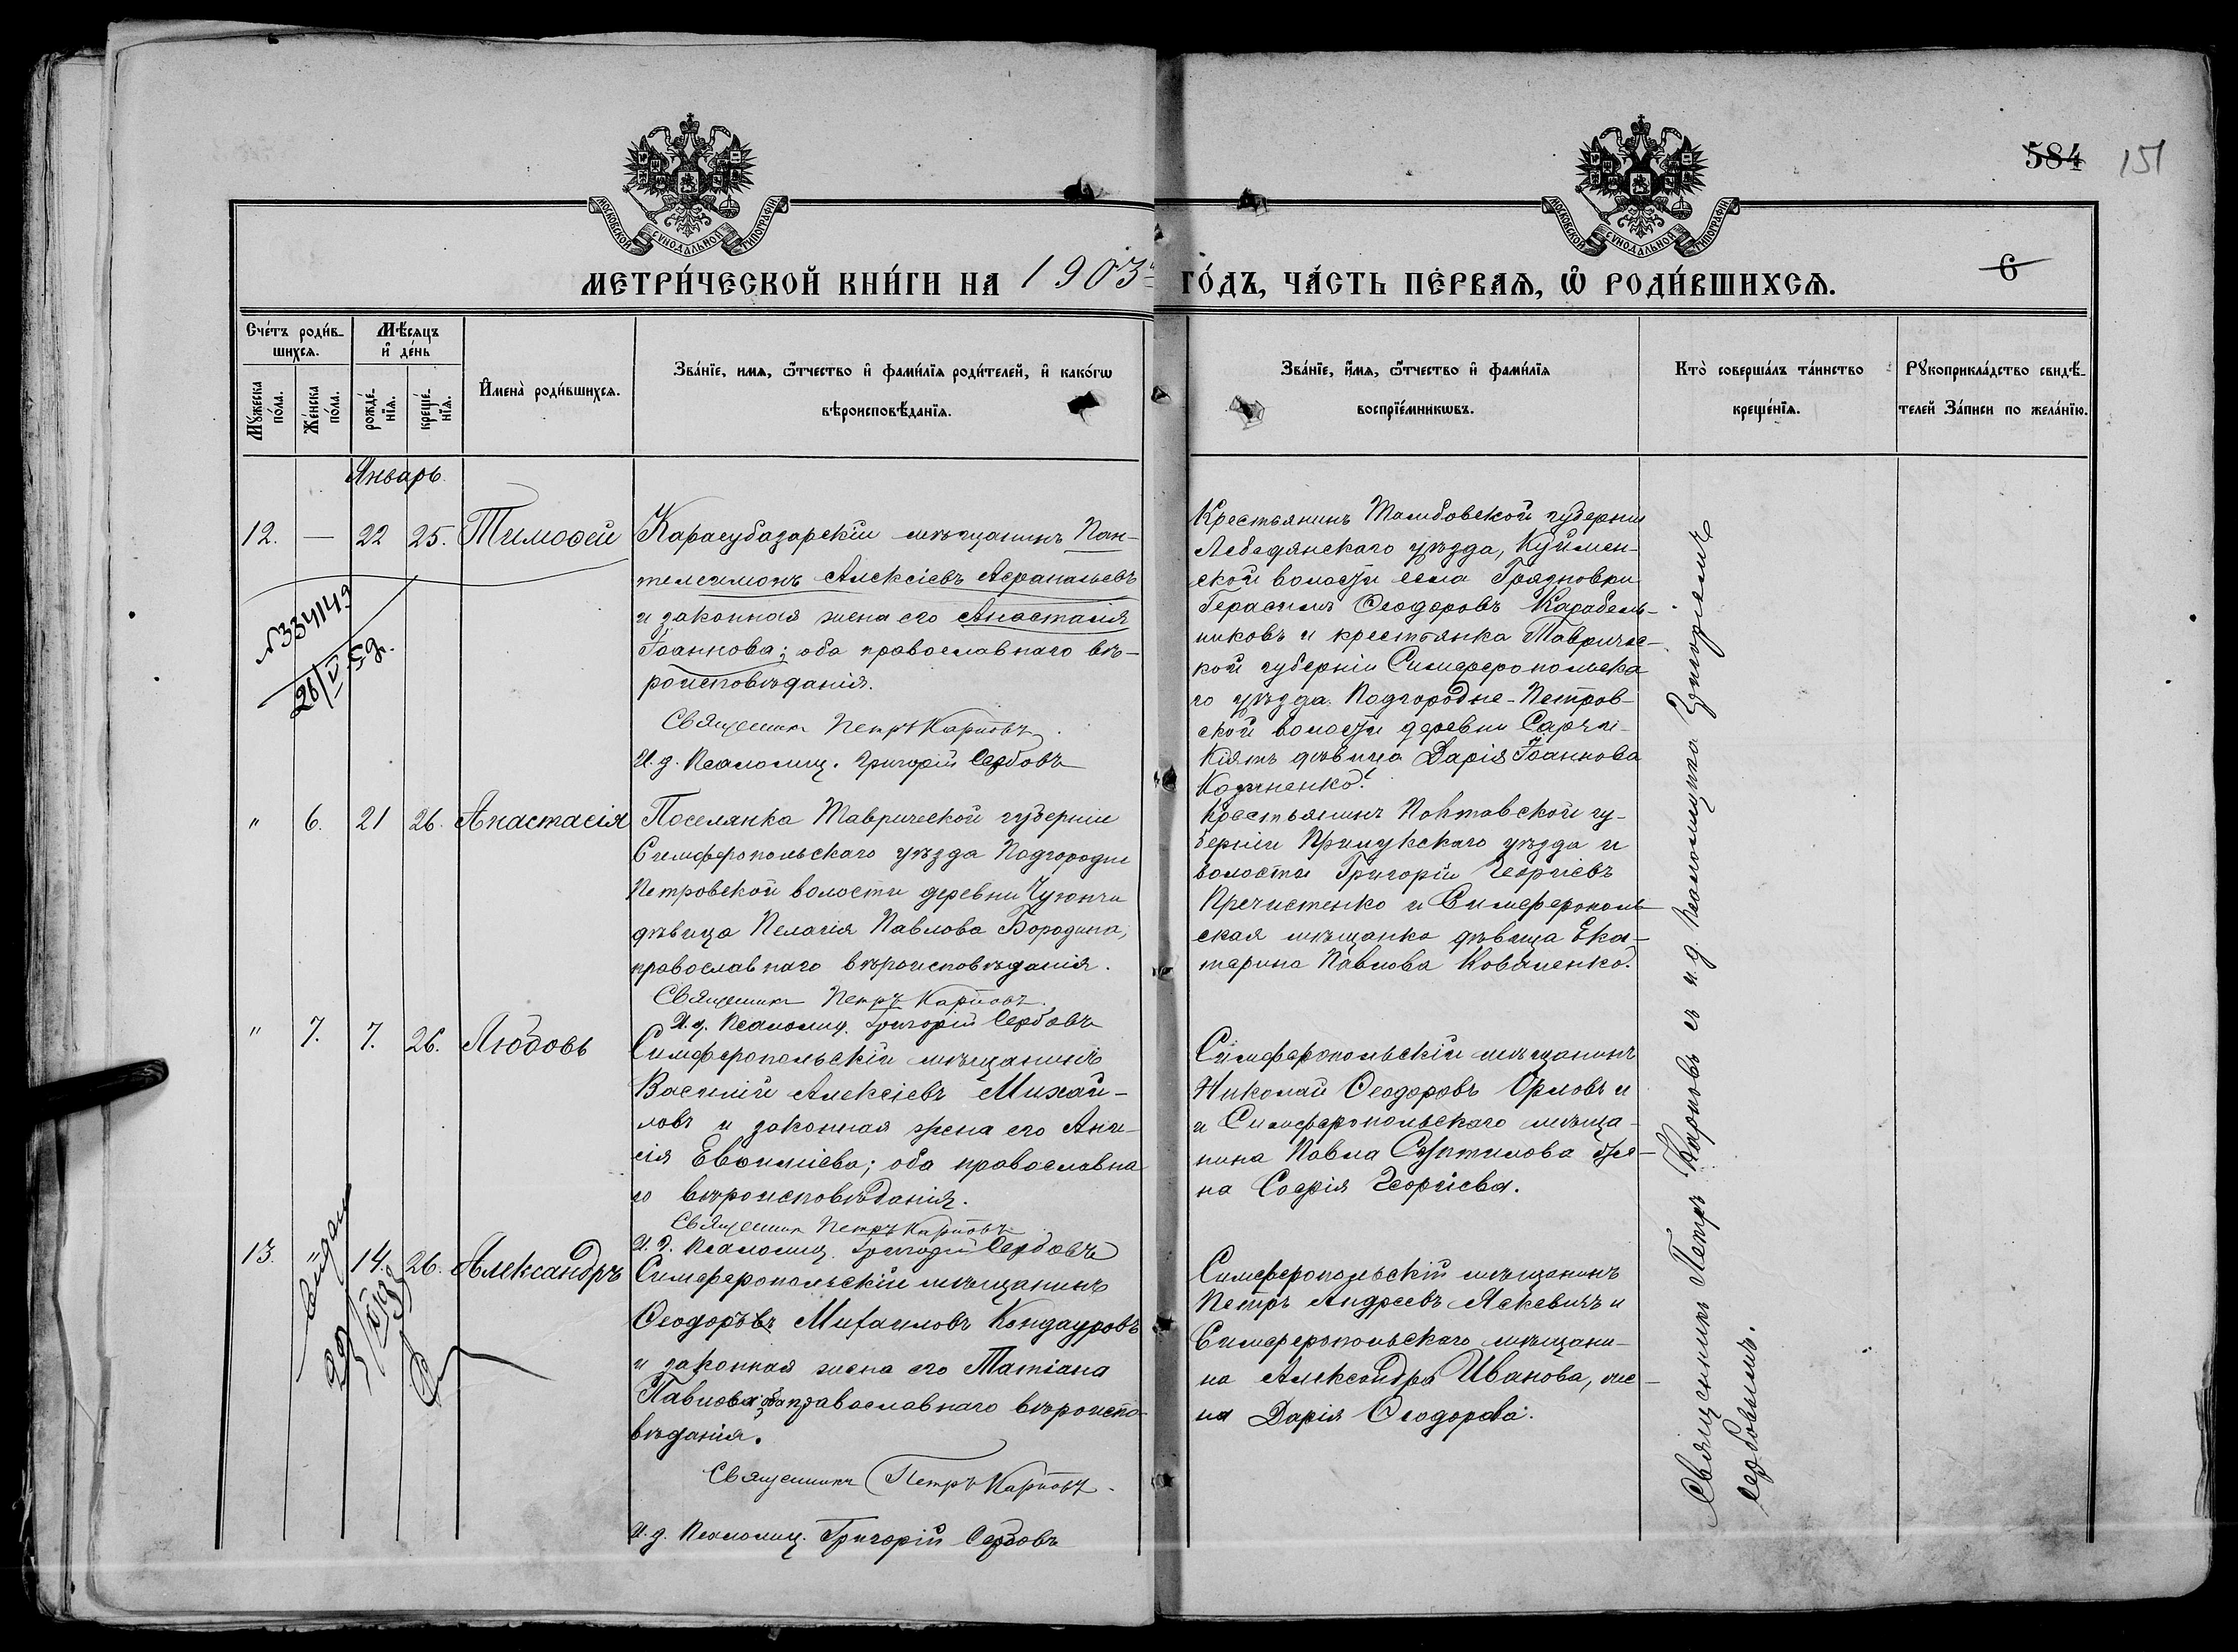 584 151
МОСКОВСКОЙ СѴНОДАЛЬНОЙ ТИПОГРАФІИ
МОСКОВСКОЙ СѴНОДАЛЬНОЙ ТИПОГРАФІИ
МЕТРИ́ЧЕСКОЙ КНИ́ГИ НА 1903й ГО́ДЪ, ЧА́СТЬ ПЕ́РВАѦ, Ѿ РОДИ́ВШИХСѦ.
6
Сче́тъ роди́в-
шихсѧ.
Мꙋ́жеска
по́ла.
Же́нска
по́ла.
Мѣ́сѧцъ
и҆ де́нь
рожде́-
нїѧ.
креще́-
нїѧ.
И҆мена̀ роди́вшихсѧ.
Зва́нїе, имѧ, ѻ҆́тчество и҆ фами́лїѧ роди́телей, и҆ како́гѡ
вѣроисповѣ́данїѧ.
Зва́нїе, и҆́мѧ, ѻ҆́тчество и҆ фами́лїѧ
воспрїе́мникѡвъ.
Кто̀ соверша́лъ та́инство
креще́нїѧ.
Рꙋкоприкла́дство свидѣ́-
телей За́писи по жела́нїю.
Январь
12. — 22 25. Тимоѳей
Карасубазарскій мѣщанинъ Пан-
телеимонъ Алексіевъ
и законная жена его Анастасія
Іоаннова; оба православнаго вѣ-
роисповѣданія.
Священникъ Петръ Карповъ
И. д. Псаломщ. Григорій Сербовъ
Крестьянинъ Тамбовской губерніи
Лебедянскаго уѣзда, Куймен-
ской волости села Грязновки
Герасимъ Ѳеодоровъ Карабель-
никовъ и крестьянка Тавричес-
кой губерніи Симферопольска
го уѣзда Подгородне-Петров-
ской волости деревни Сарчи-
Кіятъ дѣвица Дарія Іоаннова
№334149
26/V
" 6. 21 26. Анастасія
Поселянка Таврической губерніи
Симферопольскаго уѣзда Подгородне
Петровской волости деревни
дѣвица Пелагія Павлова Бородина,
православнаго вѣроисповѣданія.
Священникъ Петръ Карповъ.
И. д. Псаломщ. Григорій Сербовъ
Крестьянинъ Полтавской гу-
берніи Прилукскаго уѣзда и
волости Григорій Георгіевъ
Пречистенко и Симферополь
ская мѣщанка дѣвица Ека-
терина Павлова Коваленко.
" 7. 7. 26. Любовь
Симферопольскій мѣщанинъ
Василій Алексіевъ Михай-
ловъ и законная жена его Ани-
сія Евѳиміева; оба православна
го вѣроисповѣданія.
Священникъ Петръ Карповъ
И. д. Псаломщ. Григорій Сербовъ
Симферопольскій мѣщанинъ
Николай Ѳеодоровъ Орловъ и
и Симферопольскаго мѣща-
нина Павла же-
на Софія Георгіева.
13. " 14. 26. Александръ
Симферопольскій мѣщанинъ
Ѳеодоръ Михаиловъ Кондауровъ
и законная жена его Татіана
Павлова; оба православнаго вѣроиспо-
вѣданія.
Священникъ Петръ Карповъ.
И. д. Псаломщ. Григорій Сербовъ
Симферопольскій мѣщанинъ
Петръ Андреевъ Яскевичъ и
Симферопольскаго мѣщани-
на Александра Иванова, же-
на Дарія Ѳеодорова.
Священникъ Петръ Карповъ съ и. д. псаломщика Григоріемъ
Сербовымъ.